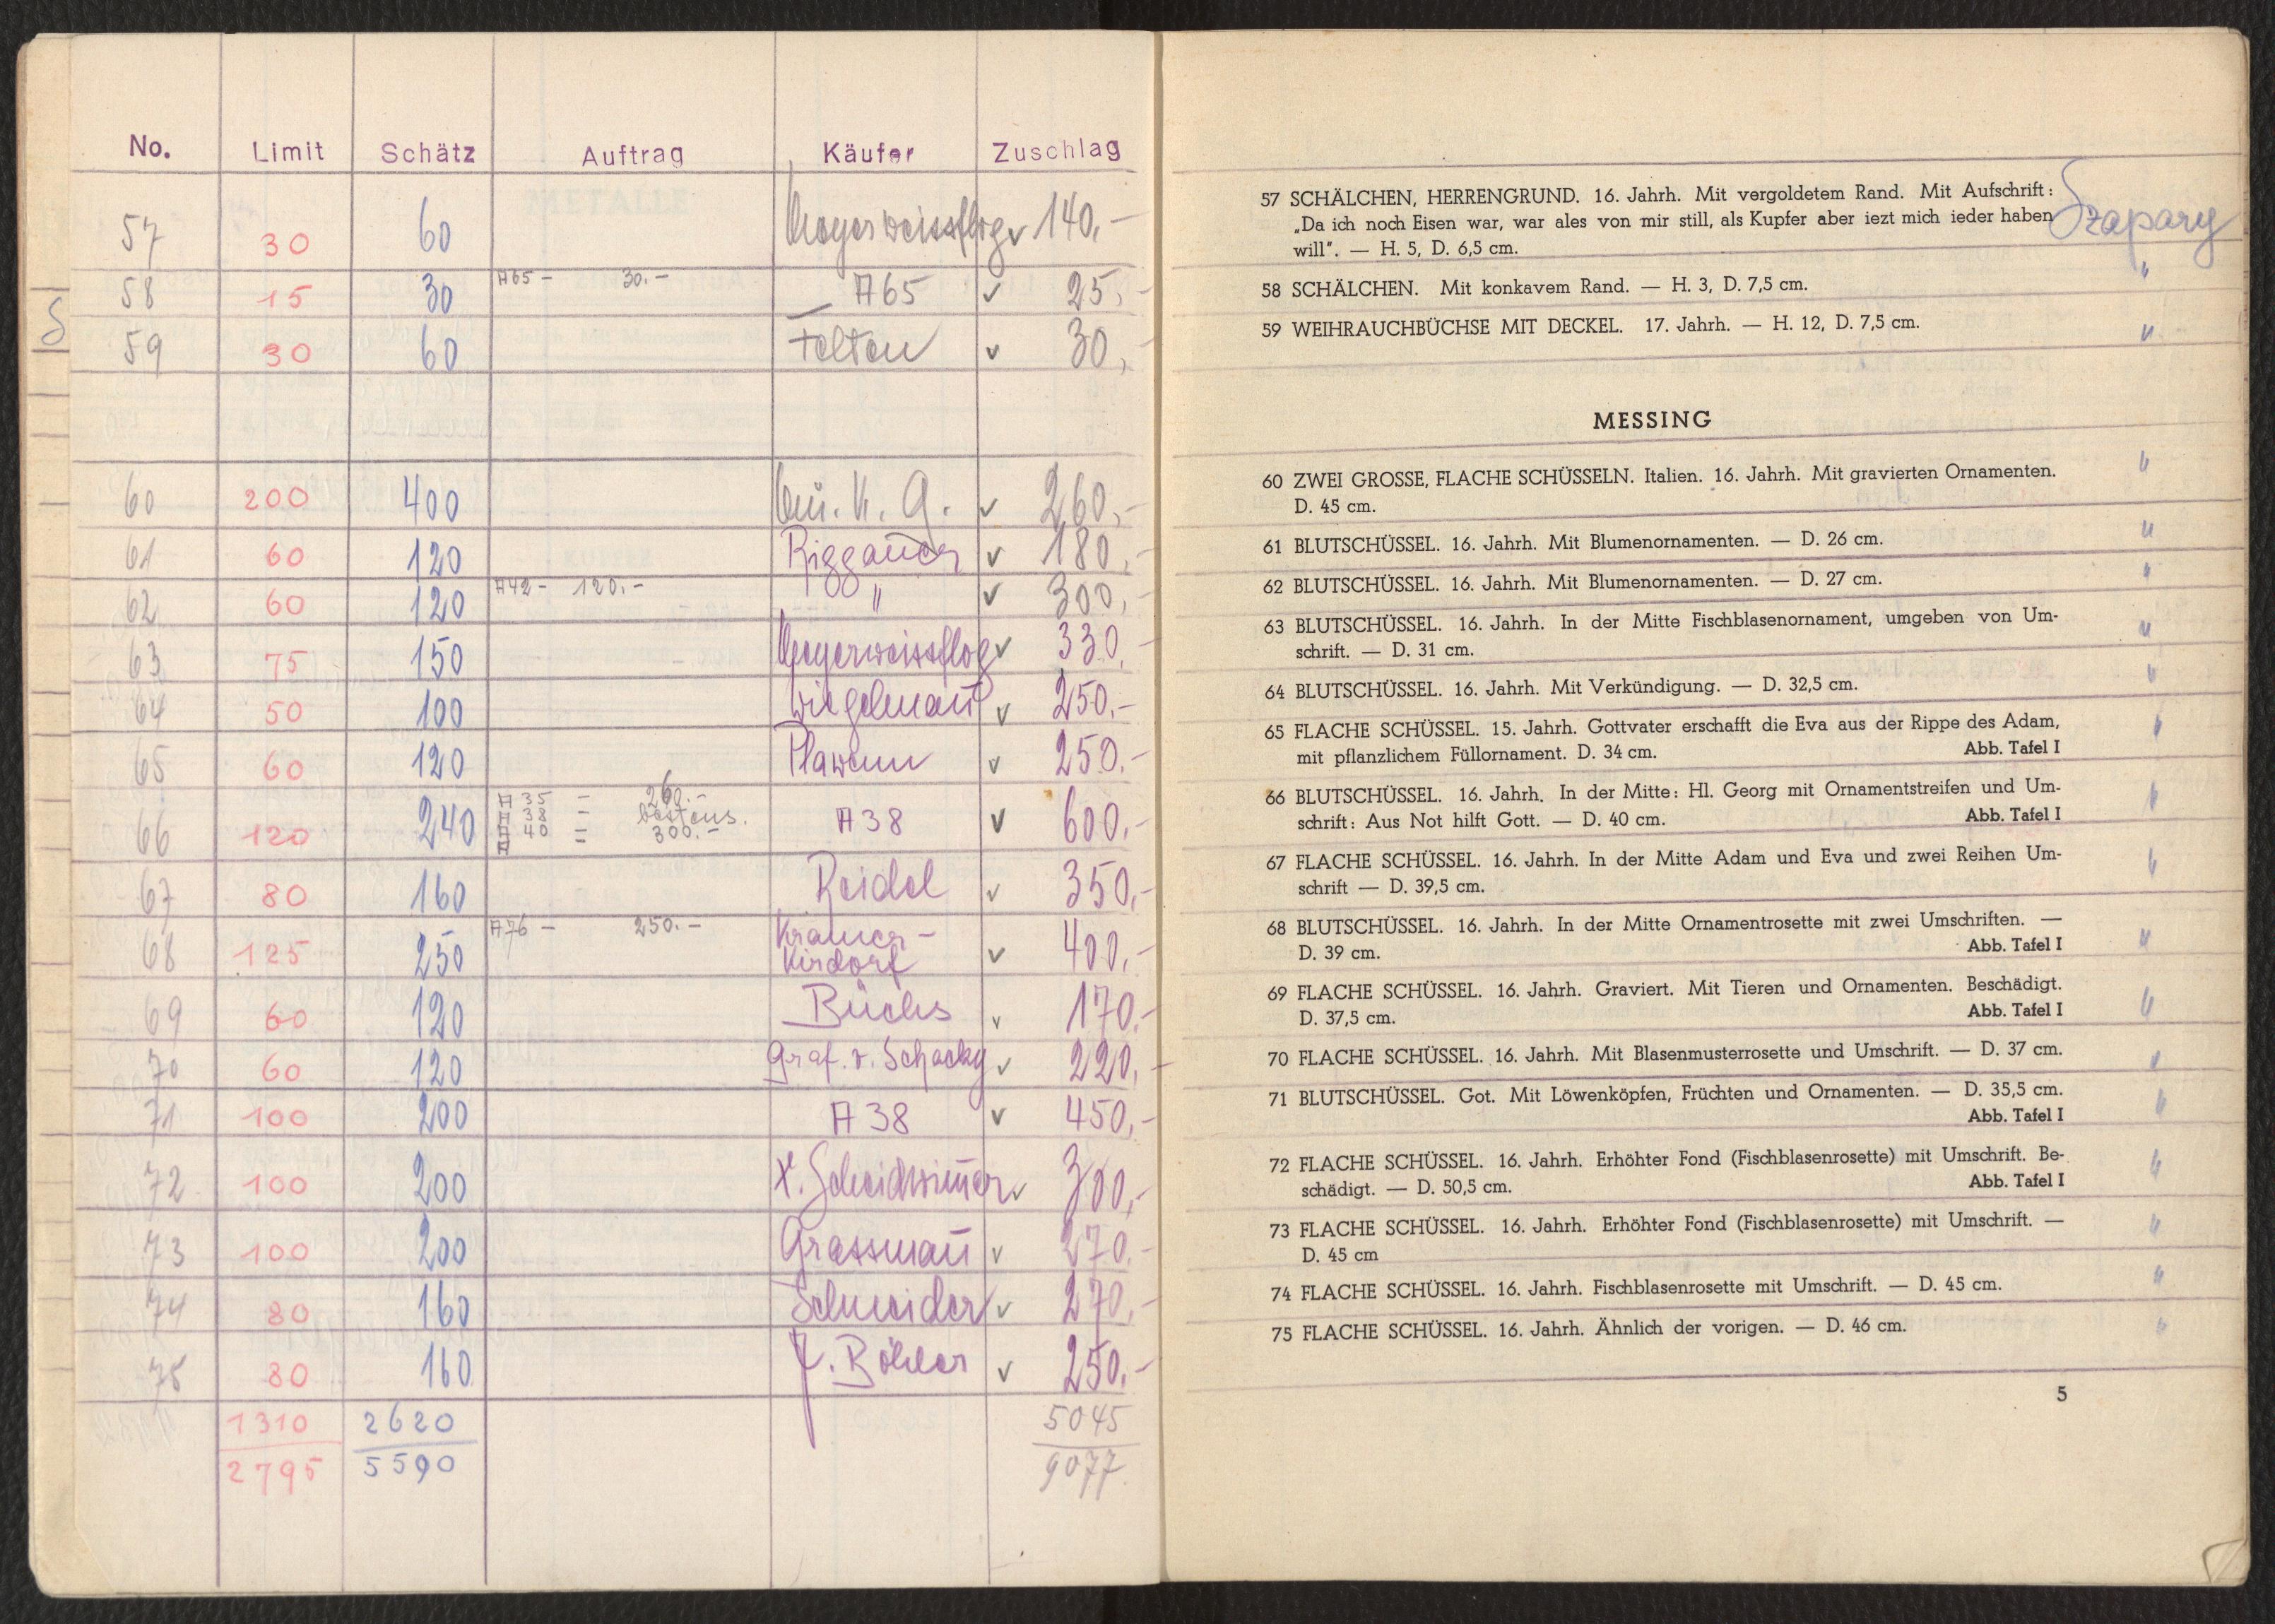 No. Limit Schätz Auftrag Käufer Zuschlag
57 30 60 Meyerweissflog v 140,-
58 15 30 A65 - 30.- A65 v 25,-
59 30 60 Felten v 30,-
60 200 400 v 260,-
61 60 120 Riggauer v 180,-
62 60 120 A42 - 120.- " v 300,-
63 75 150 Meyerweissflog v 330,
64 50 100 Wiegelmañ v 250.-
65 60 120 v 250.-
66 120 240 A 38 v 600,-
A 35 - 260.-
A 38 - bestens.
A 40 = 300.-
A -
67 80 160 Reidel v 350,-
68 125 250 A76 - 250.- Kramer-
Kirdorf v 400,-
69 60 120 Büchs v 170.-
70 60 120 Graf. v. Schacky v 220,-
71 100 200 A 38 v 450,-
72 100 200 v 300,-
73 100 200 Grassmañ v 270.-
74 80 160 Schneider v 270,-
75 80 160 J. Böhler v 250,-
1310 2620 5045
2795 5590 9077
57 SCHÄLCHEN, HERRENGRUND. 16. Jahrh. Mit vergoldetem Rand. Mit Aufschrift:
„Da ich noch Eisen war, war ales von mir still, als Kupfer aber iezt mich ieder haben Szapary
will". — H. 5, D. 6,5 cm.
58 SCHÄLCHEN. Mit konkavem Rand. — H. 3, D. 7,5 cm. "
59 WEIHRAUCHBÜCHSE MIT DECKEL. 17. Jahrh. — H. 12, D. 7,5 cm. "
MESSING
60 ZWEI GROSSE, FLACHE SCHÜSSELN. Italien. 16. Jahrh. Mit gravierten Ornamenten. "
D. 45 cm.
61 BLUTSCHÜSSEL. 16. Jahrh. Mit Blumenornamenten. — D. 26 cm. "
62 BLUTSCHÜSSEL. 16. Jahrh. Mit Blumenornamenten. — D. 27 cm. "
63 BLUTSCHÜSSEL. 16. Jahrh. In der Mitte Fischblasenornament, umgeben von Um- "
schrift. — D. 31 cm.
64 BLUTSCHÜSSEL. 16. Jahrh. Mit Verkündigung. — D. 32,5 cm. "
65 FLACHE SCHÜSSEL. 15. Jahrh. Gottvater erschafft die Eva aus der Rippe des Adam, "
mit pflanzlichem Füllornament. D. 34 cm. Abb. Tafel I
66 BLUTSCHÜSSEL. 16. Jahrh. In der Mitte: Hl. Georg mit Ornamentstreifen und Um- "
schrift: Aus Not hilft Gott. — D. 40 cm. Abb. Tafel I
67 FLACHE SCHÜSSEL. 16. Jahrh. In der Mitte Adam und Eva und zwei Reihen Um- "
schrift — D. 39,5 cm.
68 BLUTSCHÜSSEL. 16. Jahrh. In der Mitte Ornamentrosette mit zwei Umschriften. — "
D. 39 cm. Abb. Tafel I
69 FLACHE SCHÜSSEL. 16. Jahrh. Graviert. Mit Tieren und Ornamenten. Beschädigt. "
D. 37,5 cm. Abb. Tafel I
70 FLACHE SCHÜSSEL. 16. Jahrh. Mit Blasenmusterrosette und Umschrift. — D. 37 cm. "
71 BLUTSCHÜSSEL. Got. Mit Löwenköpfen, Früchten und Ornamenten. — D. 35,5 cm. "
Abb. Tafel I
72 FLACHE SCHÜSSEL. 16. Jahrh. Erhöhter Fond (Fischblasenrosette) mit Umschrift. Be- "
schädigt. — D. 50,5 cm. Abb. Tafel I
73 FLACHE SCHÜSSEL. 16. Jahrh. Erhöhter Fond (Fischblasenrosette) mit Umschrift. — "
D. 45 cm
74 FLACHE SCHÜSSEL. 16. Jahrh. Fischblasenrosette mit Umschrift. — D. 45 cm. "
75 FLACHE SCHÜSSEL. 16. Jahrh. Ähnlich der vorigen. — D. 46 cm. "
5